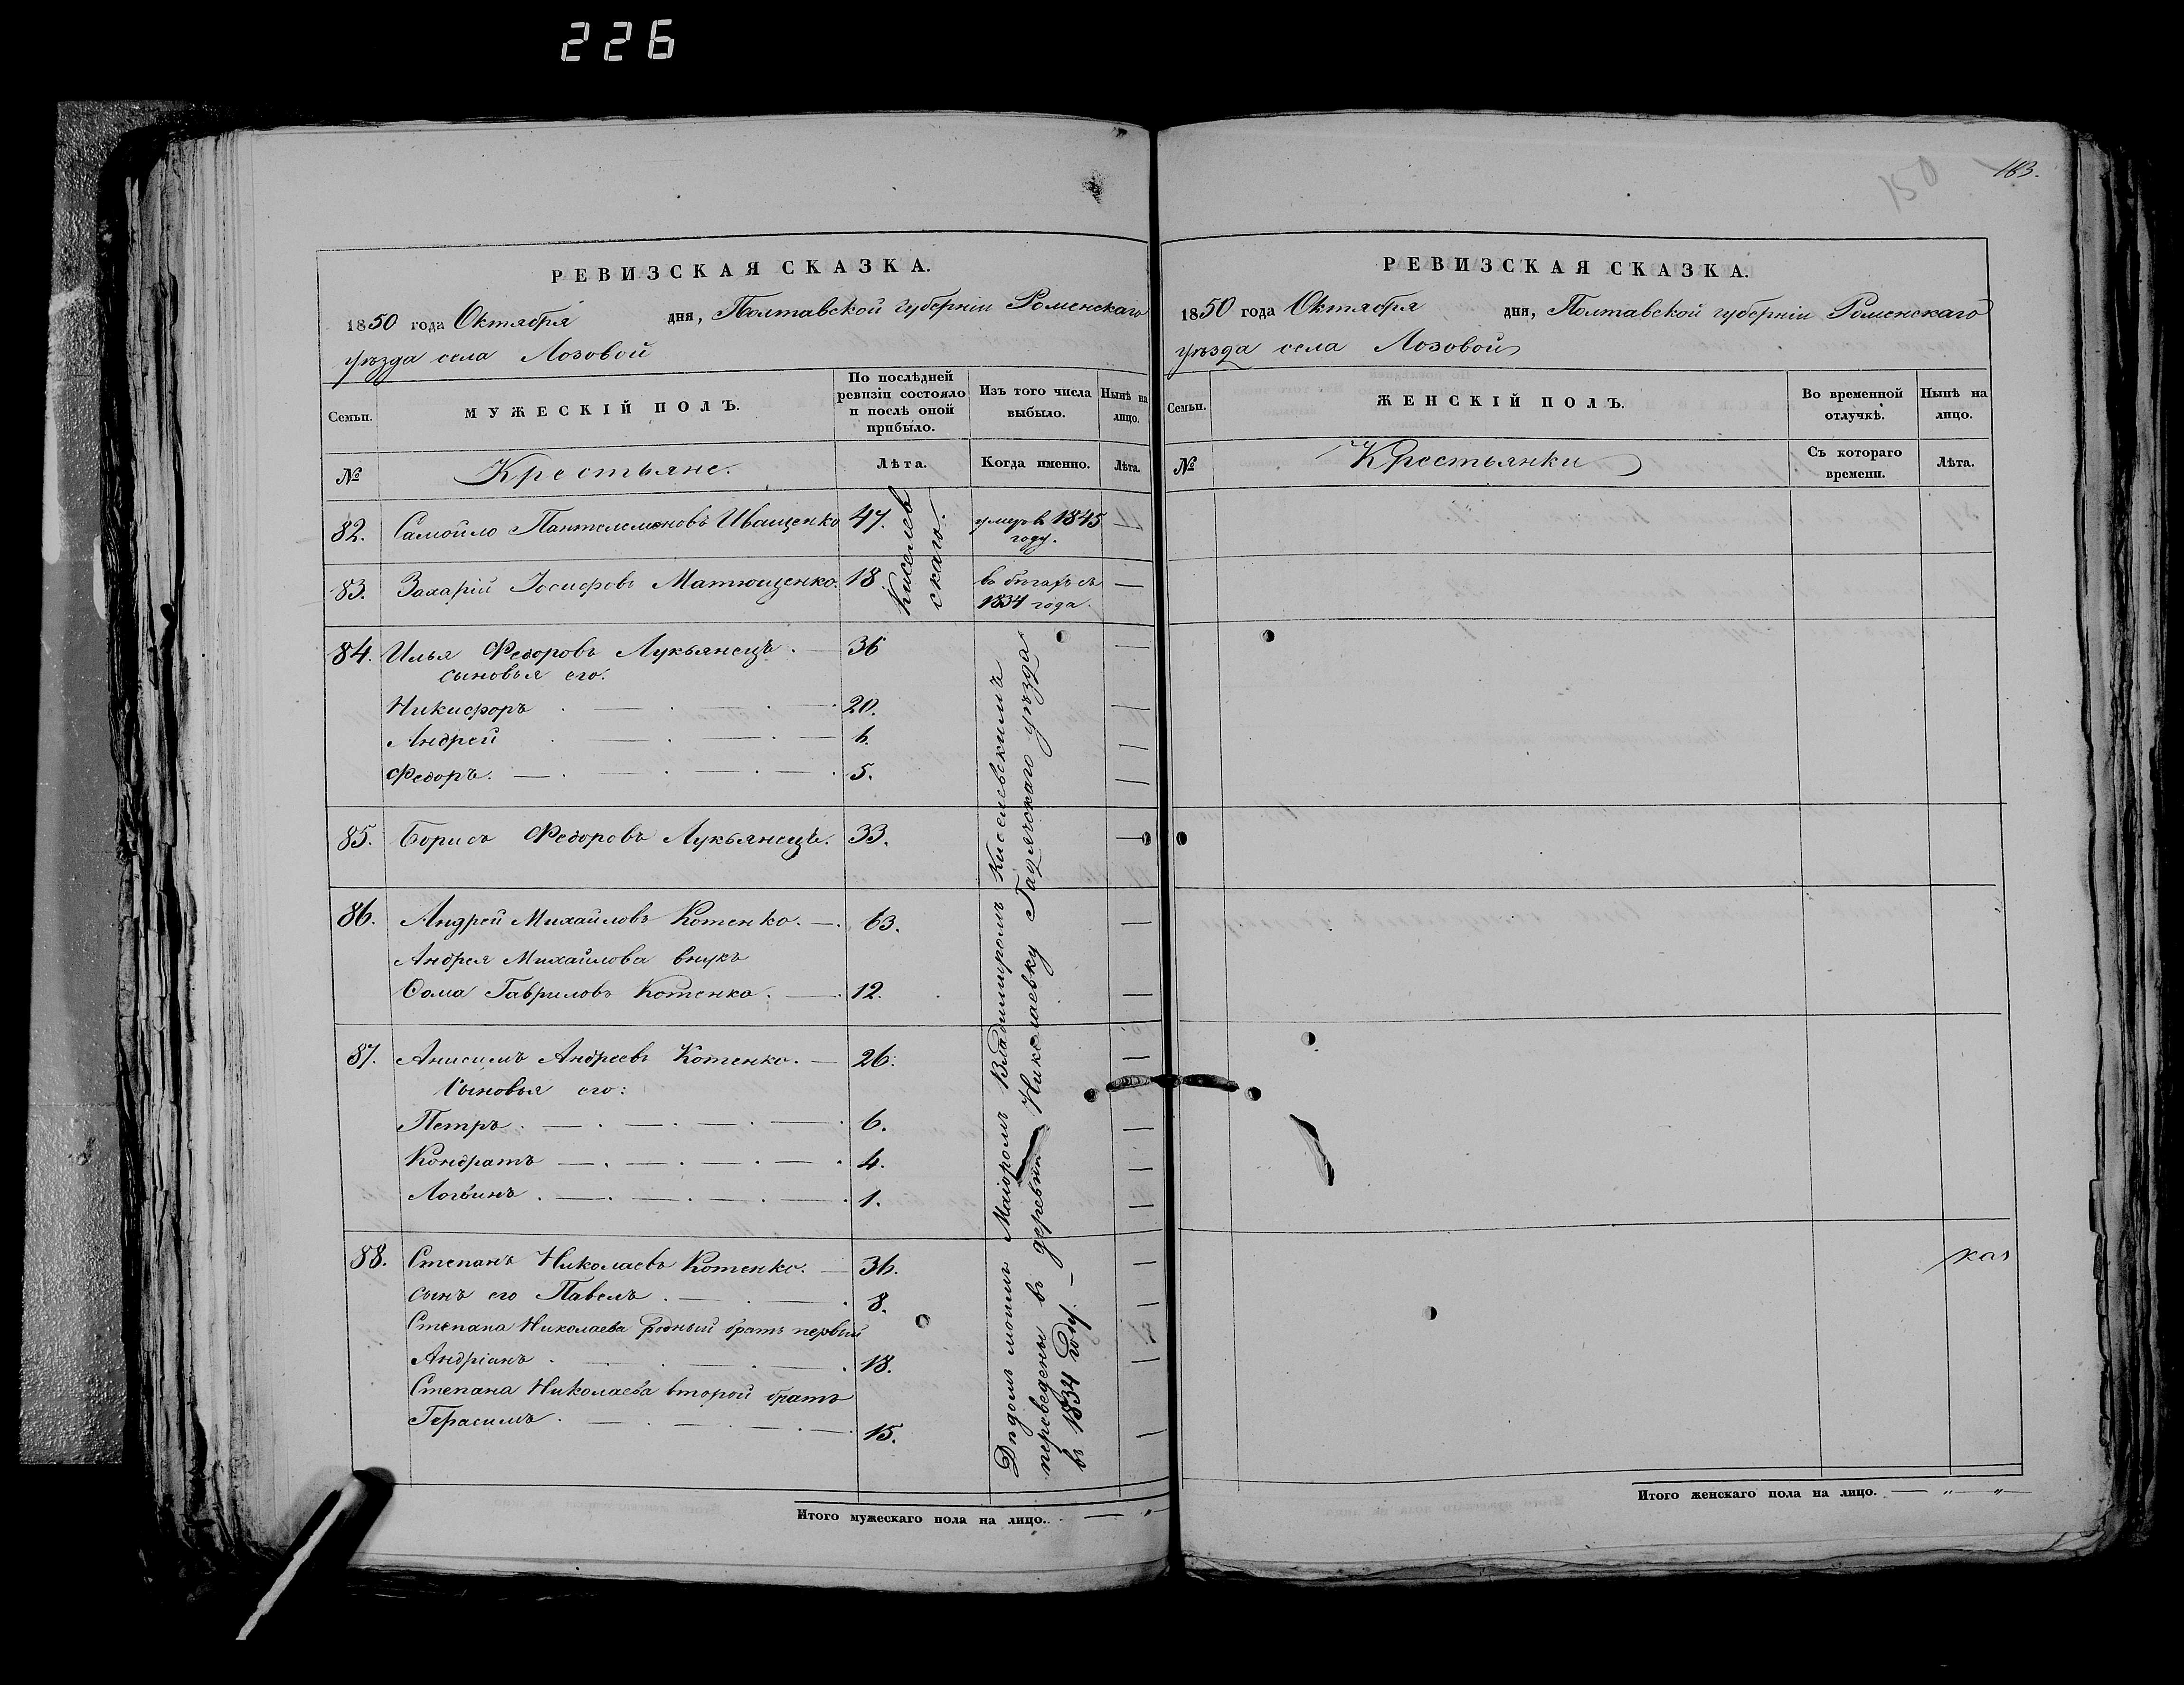 226
150
183.
РЕВИЗСКАЯ СКАЗКА.
1850 года Октября дня, Полтавской губерніи Роменскаго
уѣзда села Лозовой
Семьи. МУЖЕСКІЙ ПОЛЪ. По послѣдней ревизіи состояло и послѣ оной прибыло. Изъ того числа выбыло. Нынѣ на лицо.
№ Крестьяне. Лѣта. Когда именно. Лѣта.
82. Самойло Пантелемоновъ Иващенко 47. умеръ въ 1845 году. —
83. Захарій Іосифовъ Матющенко. 18. въ бѣгахъ съ 1834 года. —
Киселев
скаго.
84. Илья Федоровъ Лукьянецъ. — 36 —
сыновья его:
Никифоръ . — . — . — . 20. —
Андрей . — . — . — 6. —
Федоръ. — . — . — . 5. —
85. Борисъ Федоровъ Лукьянецъ. 33. —
86. Андрей Михайловъ Котенко. — . 63. —
Андрея Михайлова внукъ
Фома Гавриловъ Котенко. — . 12. —
87. Анисимъ Андреевъ Котенко. — 26. —
Сыновья его:
Петръ . — . — . — . — . 6. —
Кондратъ — . — . — . — . 4. —
Логвинъ . — . — . — . — . 1. —
88. Степанъ Николаевъ Котенко. — 36. —
сынъ его Павелъ . — . — . 8. —
Степана Николаева родный братъ первый
Андріанъ . — . — . — . 18. —
Степана Николаева второй братъ
Герасимъ . — . — . — . — 15. —
Дядомъ моимъ Маіоромъ Владимиромъ Киселевскимъ
переведены въ деревню Николаевку Гадячскаго уѣзда
въ 1834 году. —
Итого мужескаго пола на лицо. . — „
РЕВИЗСКАЯ СКАЗКА.
1850 года Октября дня, Полтавской губерніи Роменскаго
уѣзда села Лозовой
Семьи. ЖЕНСКІЙ ПОЛЪ. Во временной отлучкѣ. Нынѣ на лицо.
№ Крестьянки Съ котораго времени. Лѣта.
Итого женскаго пола на лицо. — „ — „ —